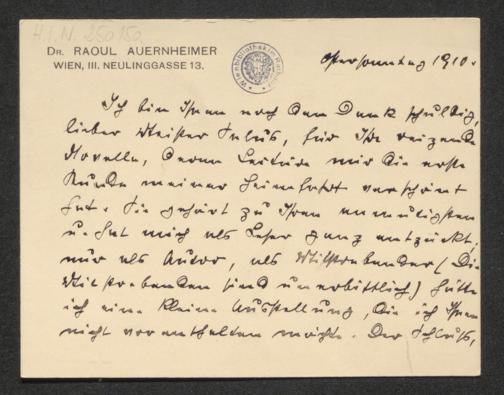 H.I.N. 250150
Dr. RAOUL AUERNHEIMER
WIEN, III. NEULINGGASSE 13.
Wienbibliothek im Rathaus
Ostersonntag 1910.
Ich bin Ihnen noch den Dank schuldig,
lieber Meister Salus, für Ihre reizende
Novelle, deren Lectüre mir die erste
Stunde meiner Heimfahrt verschönt
hat. Sie gehört zu Ihren anmutigsten
u. hat mich als Leser ganz entzückt,
nur als Autor, als Mitstrebender (Die
Mitstrebenden sind unerbittlich) hätte
ich eine kleine Ausstellung, die ich Ihnen
nicht vorenthalten möchte. Der Schluss,